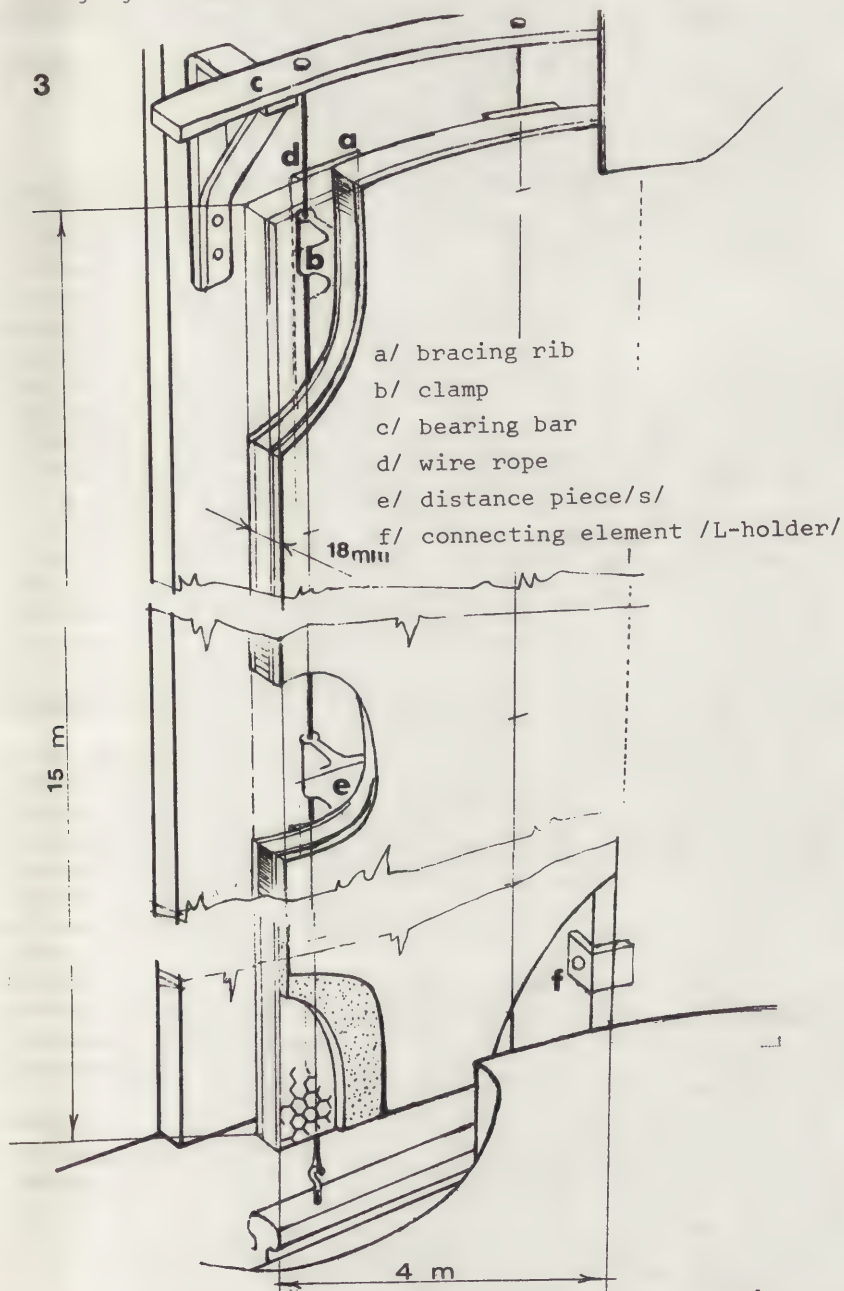 3
c
a
d
b
a/ bracing rib
b/ clamp
c/ bearing bar
d/ wire rope
e/ distance piece/s/
f/ connecting element /L-holder/
18mm
15 m
e
f
4 m